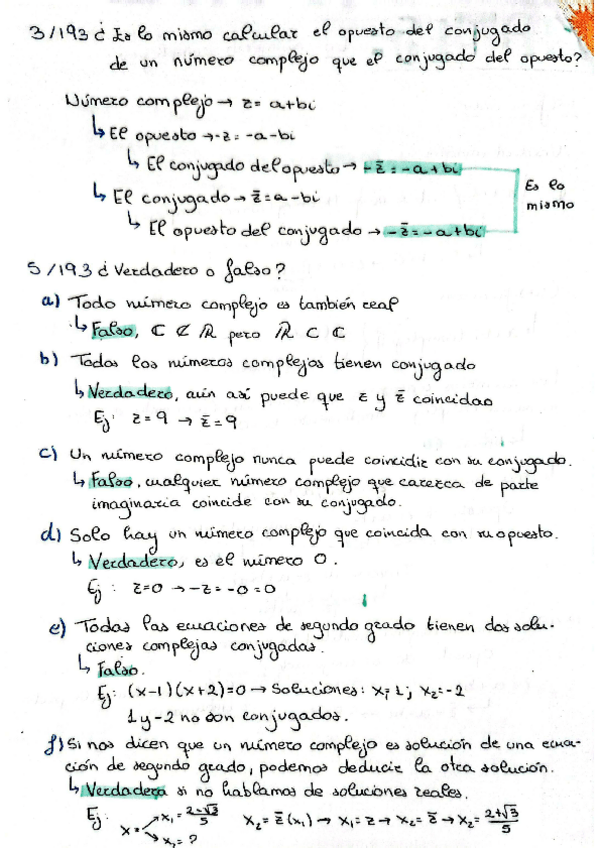 3/193 ¿Es lo mismo calcular el opuesto del conjugado
de un número complejo que el conjugado del opuesto?
Número complejo → z = a+bi
↳ El opuesto → -z = -a-bi
↳ El conjugado del opuesto → -z̄ = -a+bi
↳ El conjugado → z̄ = a-bi
↳ El opuesto del conjugado → -z̄ = -a+bi
Es lo
mismo
5/193 ¿Verdadero o falso?
a) Todo número complejo es también real
↳ Falso, ℂ ⊄ ℝ pero ℝ ⊂ ℂ
b) Todos los números complejos tienen conjugado
↳ Verdadero, aún así puede que z y z̄ coincidan
Ej: z = 9 → z̄ = 9
c) Un número complejo nunca puede coincidir con su conjugado.
↳ Falso, cualquier número complejo que carezca de parte
imaginaria coincide con su conjugado.
d) Solo hay un número complejo que coincida con su opuesto.
↳ Verdadero, es el número 0.
Ej: z=0 → -z = -0 = 0
e) Todas las ecuaciones de segundo grado tienen dos solu-
ciones complejas conjugadas.
↳ Falso.
Ej: (x-1)(x+2)=0 → Soluciones: x₁=1; x₂=-2
1 y -2 no son conjugados.
f) Si nos dicen que un número complejo es solución de una ecua-
ción de segundo grado, podemos deducir la otra solución.
↳ Verdadera si no hablamos de soluciones reales.
Ej: x = x₁ = 2-√3/5 x₂ = ? x₂ = z̄(x₁) → x₁ = z → x₂ = z̄ → x₂ = 2+√3/5